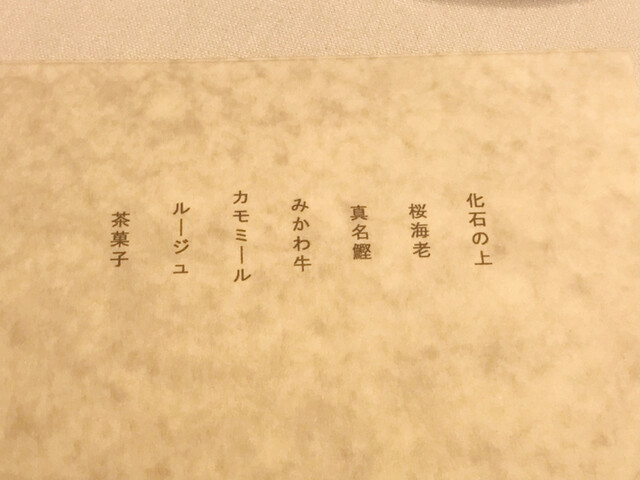 化石の上
桜海老
真名鰹
みかわ牛
カモミール
ルージュ
茶菓子